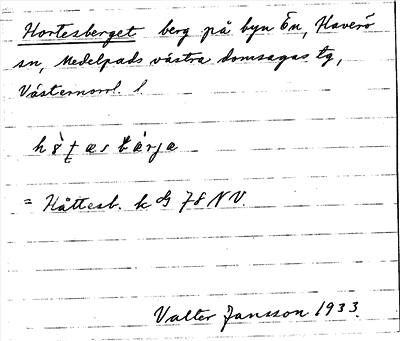 Hortesberget berg på byn Ön, Haverö
sn, Medelpads västra domsagas tg,
Västernorrl. l.
= Håttesb. k G 78 NV.
Valter Jansson 1933.